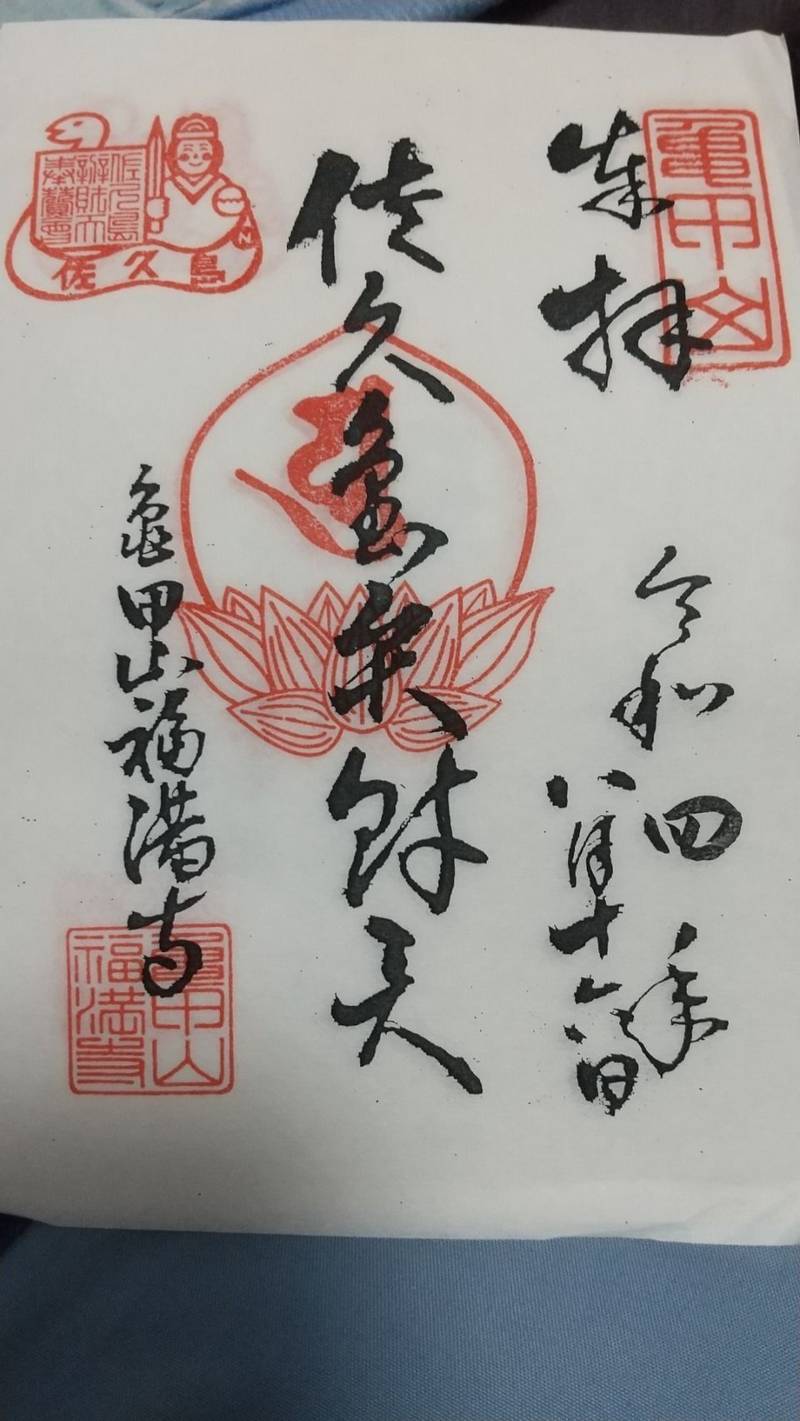 亀甲山
奉拝
令和四年
八月十六日
佐久島弁財天
佐久島
辨財天
奉賛會
佐久島
N
亀甲山福満寺
亀甲山
福満寺